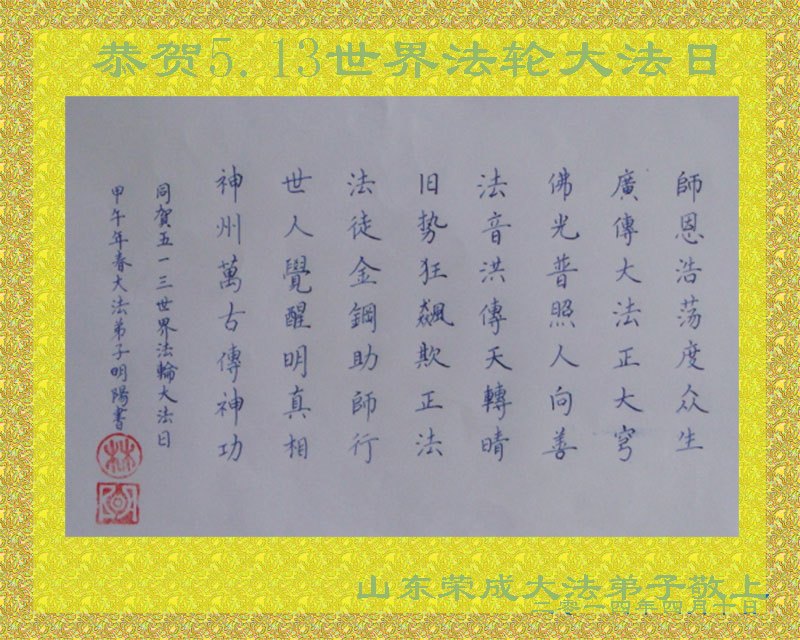 恭贺5.13世界法轮大法日
師恩浩荡度众生
廣傳大法正大穹
佛光普照人向善
法音洪傳天轉晴
旧势狂飙欺正法
法徒金鋼助師行
世人覺醒明真相
神州萬古傳神功
同賀五一三世界法輪大法日
甲午年春大法弟子明陽書
林
山东荣成大法弟子敬上
二零一四年四月十日